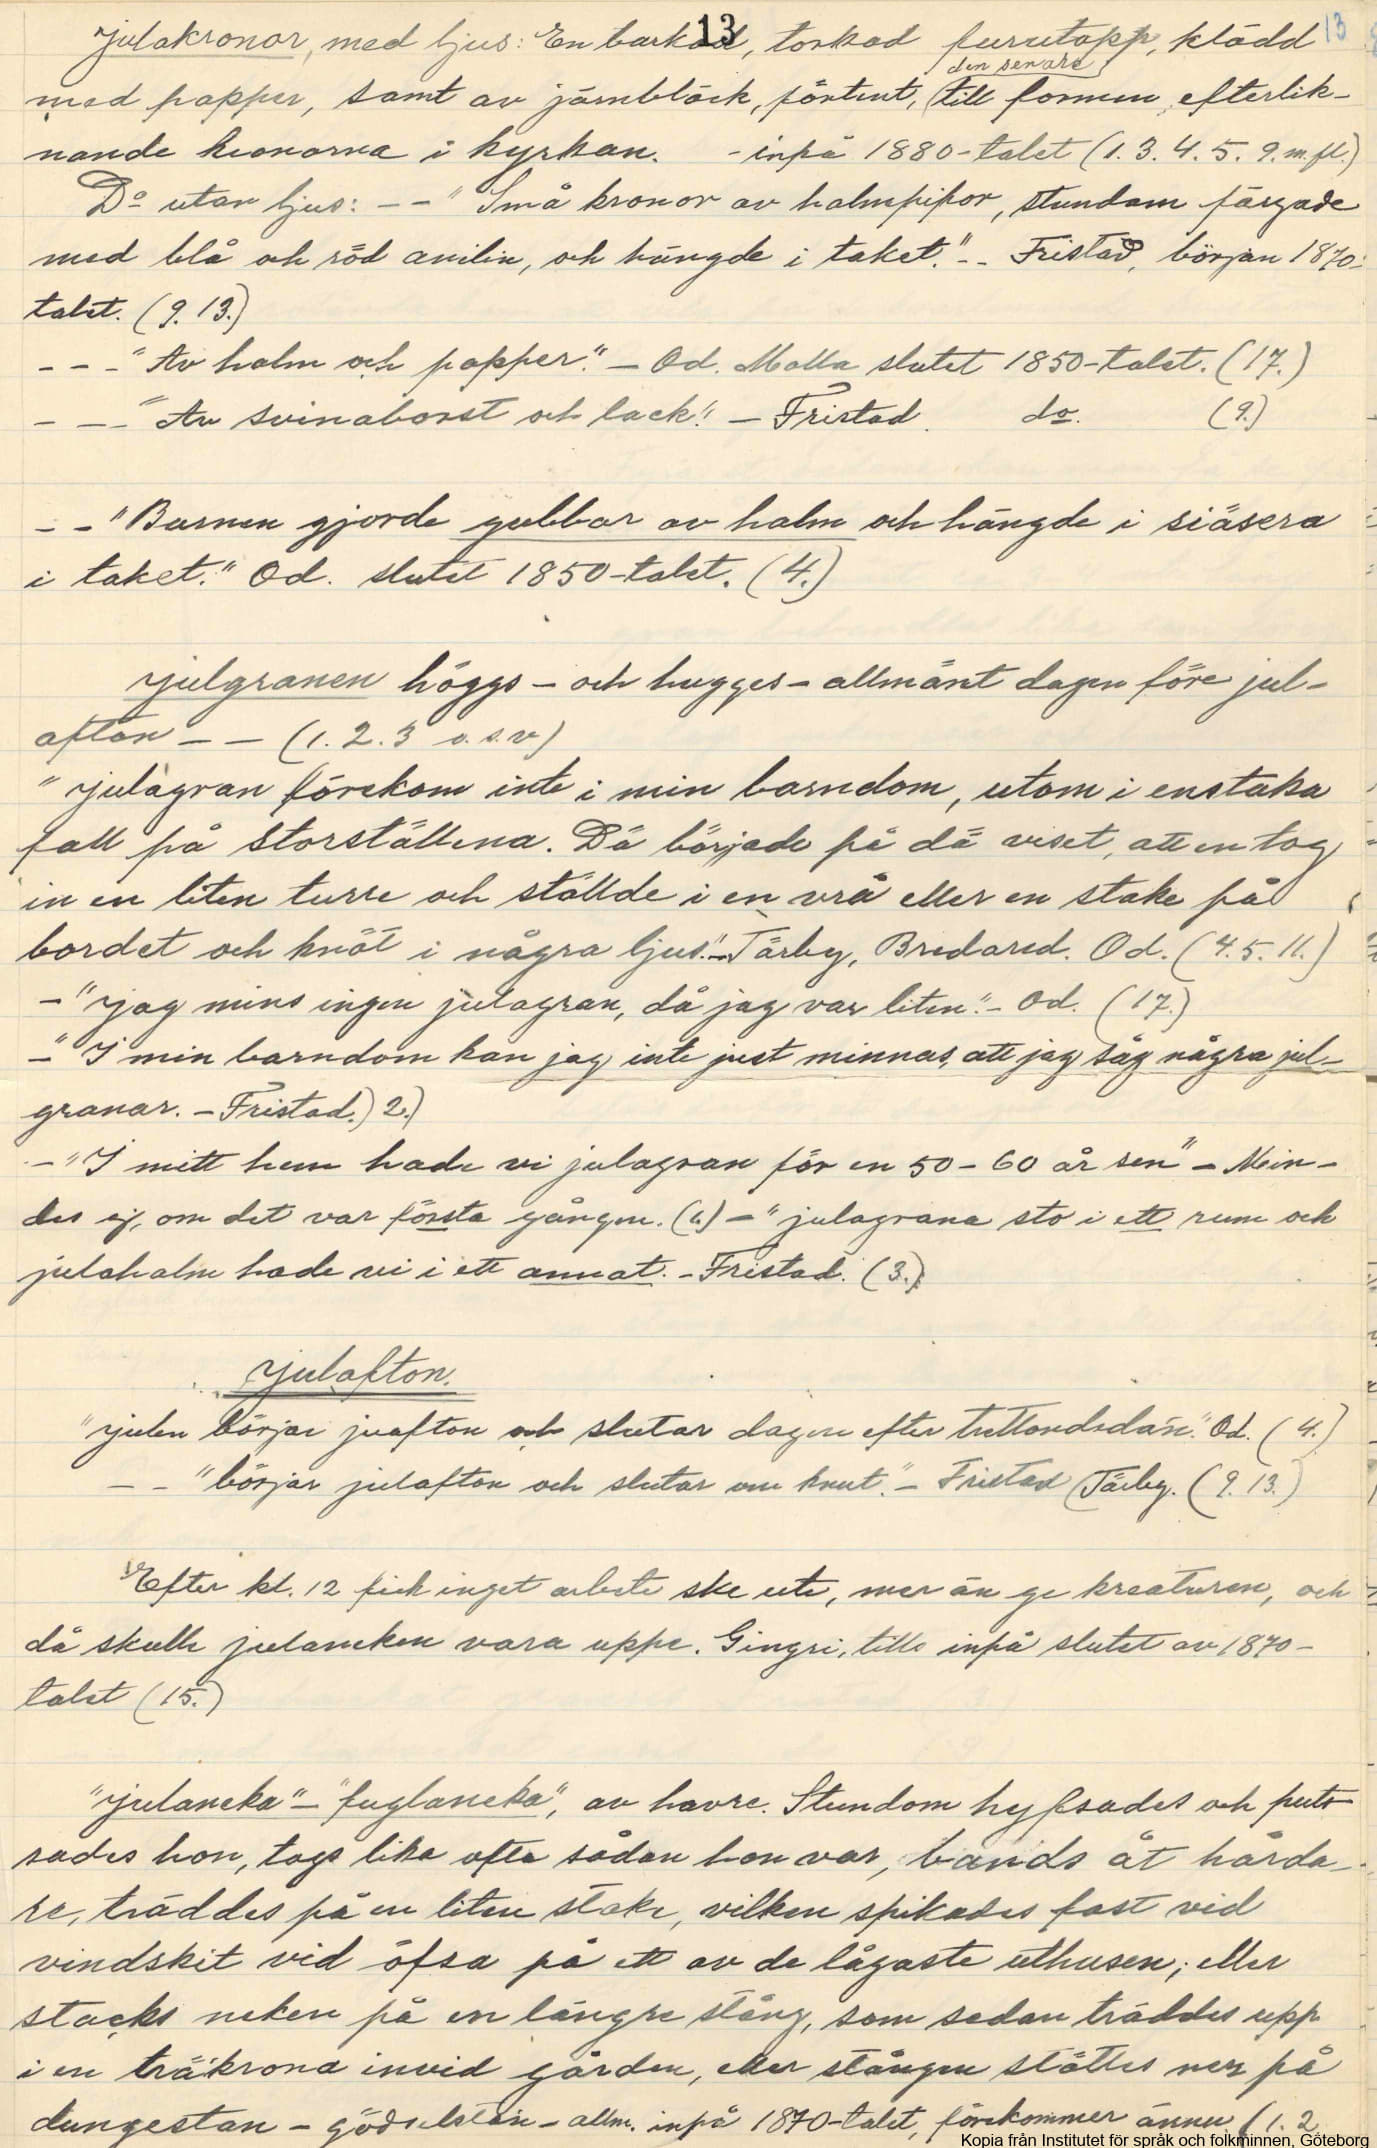 13
13
Julakronor, med ljus: En barkad, torkad furutopp, klädd
den senare
med papper, samt av järnbläck, förtent, till formen efterlik-
nande kronorna i kyrkan. - inpå 1880-talet (1. 3. 4. 5. 9. m. fl.)
Do utan ljus: - - "Små kronor av halmpipor, stundom färgade
med blå och röd anilin, och hängde i taket." - - Fristad, början 1870-
talet. (9. 13.)
- - - "Av halm och papper." - Od. Molla slutet 1850-talet. (17.)
- - - "Av svinaborst och lack." - Fristad. do. (9.)
- - "Barnen gjorde gubbar av halm och hängde i siäsera
i taket." Od. slutet 1850-talet. (4.)
Julgranen höggs - och hugges - allmänt dagen före jul-
afton - - (1. 2. 3 o.s.v.)
"Julagran förekom inte i min barndom, utom i enstaka
fall på storställena. Dä började på dä viset, att en tog
in en liten turre och ställde i en vrå eller en stake på
bordet och knöt i några ljus." - Tärby, Bredared. Od. (4. 5. 11.)
- "Jag mins ingen julagran, då jag var liten." - Od. (17.)
- "I min barndom kan jag inte just minnas, att jag såg några jul-
granar. - Fristad.) 2.)
- "I mitt hem hade vi julagran för en 50 - 60 år sen" - Min-
des ej, om det var första gången. (6.) - "julagrana sto i ett rum och
julahalm hade vi i ett annat. - Fristad. (3.)
Julafton.
"Julen börjar juafton och slutar dagen efter trettondedan." Od. (4.)
- - "börjar julafton och slutar om knut." - Fristad Tärby. (9. 13.)
Efter kl. 12 fick inget arbete ske ute, mer än ge kreaturen, och
då skulle julaneken vara uppe. Gingri, tills inpå slutet av 1870-
talet (15.)
"Julaneka" - "fuglaneka", av havre. Stundom hyfsades och puts-
sades hon, togs lika ofta sådan hon var, bands åt hårda-
re, träddes på en liten stake, vilken spikades fast vid
vindskit vid öfsa på ett av de lägaste uthusen, eller
stacks neken på en längre stång, som sedan träddes upp
i en träkrona invid gården, eller stången stöttes ner på
dungestan - gödselstan - allm. inpå 1870-talet, förekommer ännu. (1. 2
Kopia från Institutet för språk och folkminnen, Göteborg